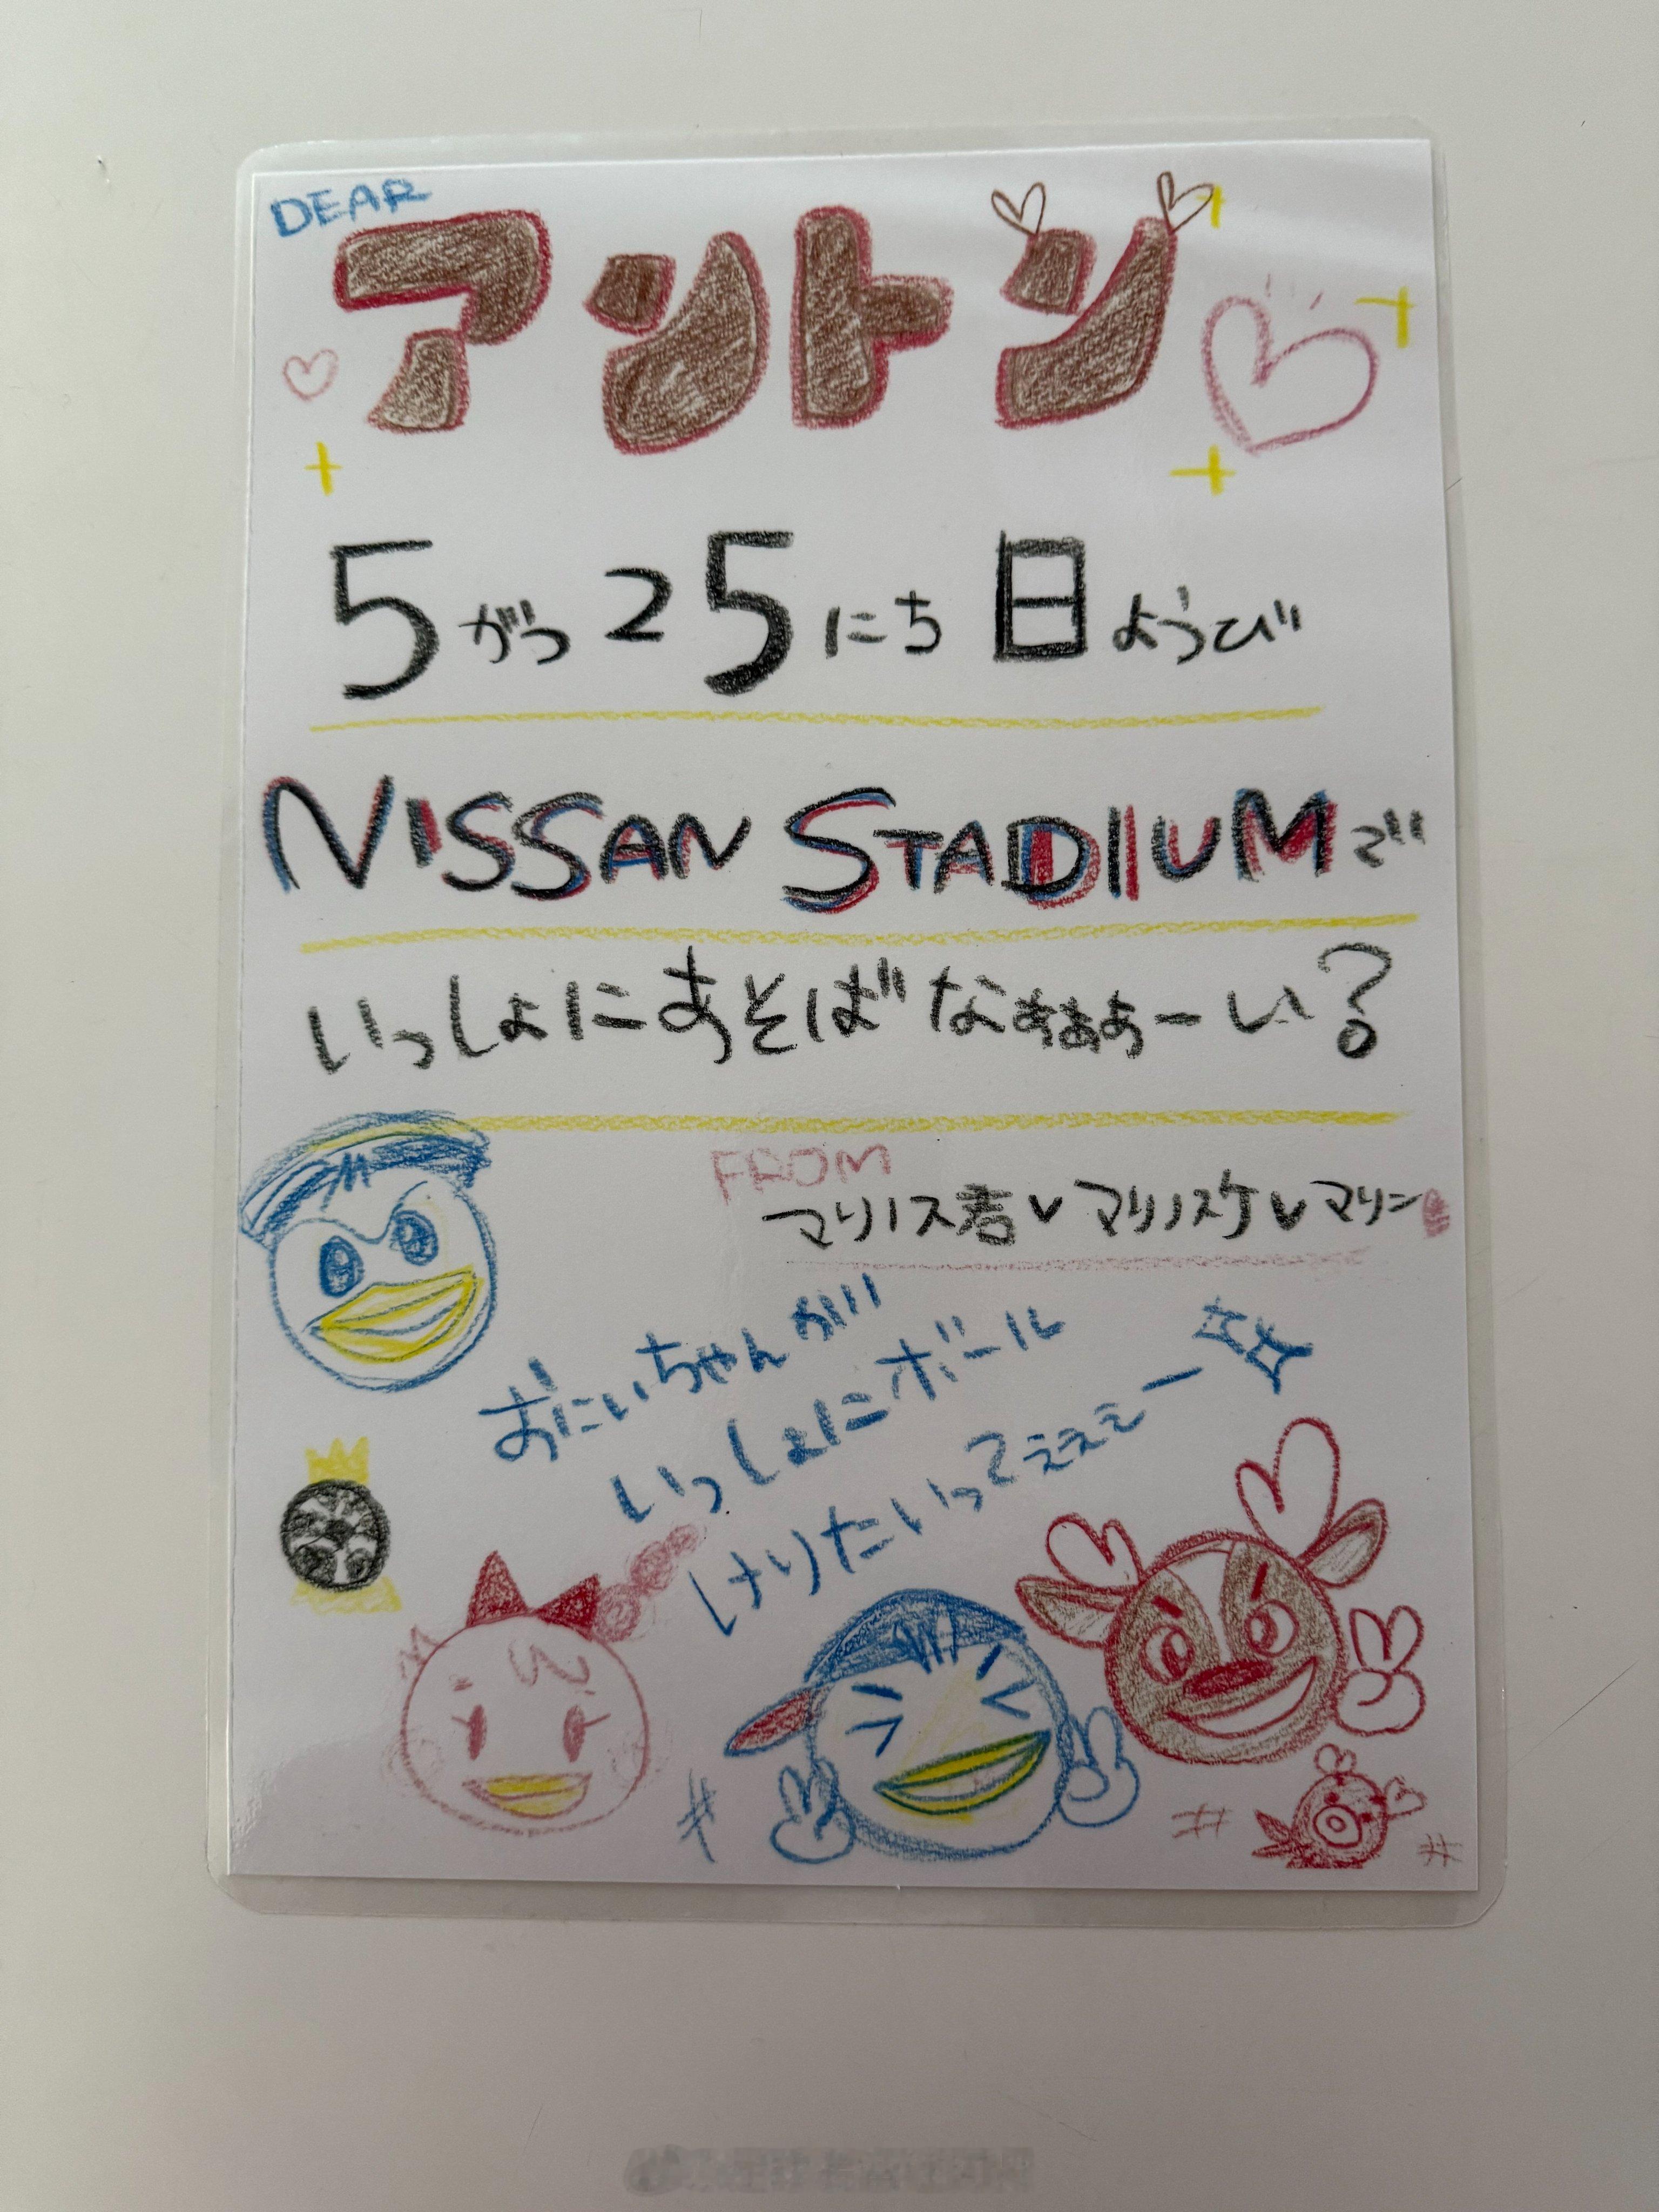 DEAR
アントン
5がつ25にち日ようび
NISSAN STADIUMで
いっしょにあそばなぁぁぁーい?
FROM
マリノス君♥マリノスケ♥マリン
おにいちゃんが
いっしょにボール
けりたいってぇぇぇー